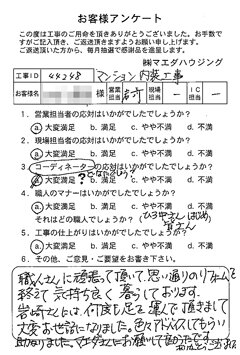 お客様アンケート
この度は工事のご用命を頂きありがとうございました。お手数で
すがご記入頂き、ご返送頂きますようお願い申し上げます。
ご返送頂いた方から、毎月抽選で感謝品を進呈します。
㈱マエダハウジング
工事ID 44248 マンション内装工事
お客様名 様 営業担当 岩崎 現場担当 ー IC担当 ー
1. 営業担当者の応対はいかがでしたでしょうか?
a.大変満足 b. 満足 c. やや不満 d. 不満
2. 現場担当者の応対はいかがでしたでしょうか?
a.大変満足 b. 満足 c. やや不満 d. 不満
3. コーディネーターの応対はいかがでしたでしょうか?
a.大変満足 ? b. 満足 c. やや不満 d. 不満
4. 職人のマナーはいかがでしたでしょうか?
a.大変満足 b. 満足 c. やや不満 d. 不満
それはどの職人でしょうか? (
5. 工事の仕上がりはいかがでしたでしょうか?
a.大変満足 b. 満足 c. やや不満 d. 不満
6. その他、ご意見・ご要望をお書き下さい。
職人さんに頑張って頂いて、思い通りのリフォームを
終えて気持ち良く暮らしております。
岩崎さんには、何度も足を運んで頂きまして
大変お世話になりました。色々アドバイスしてもらい
助かりました。マエダさんにお願いして良かったです。